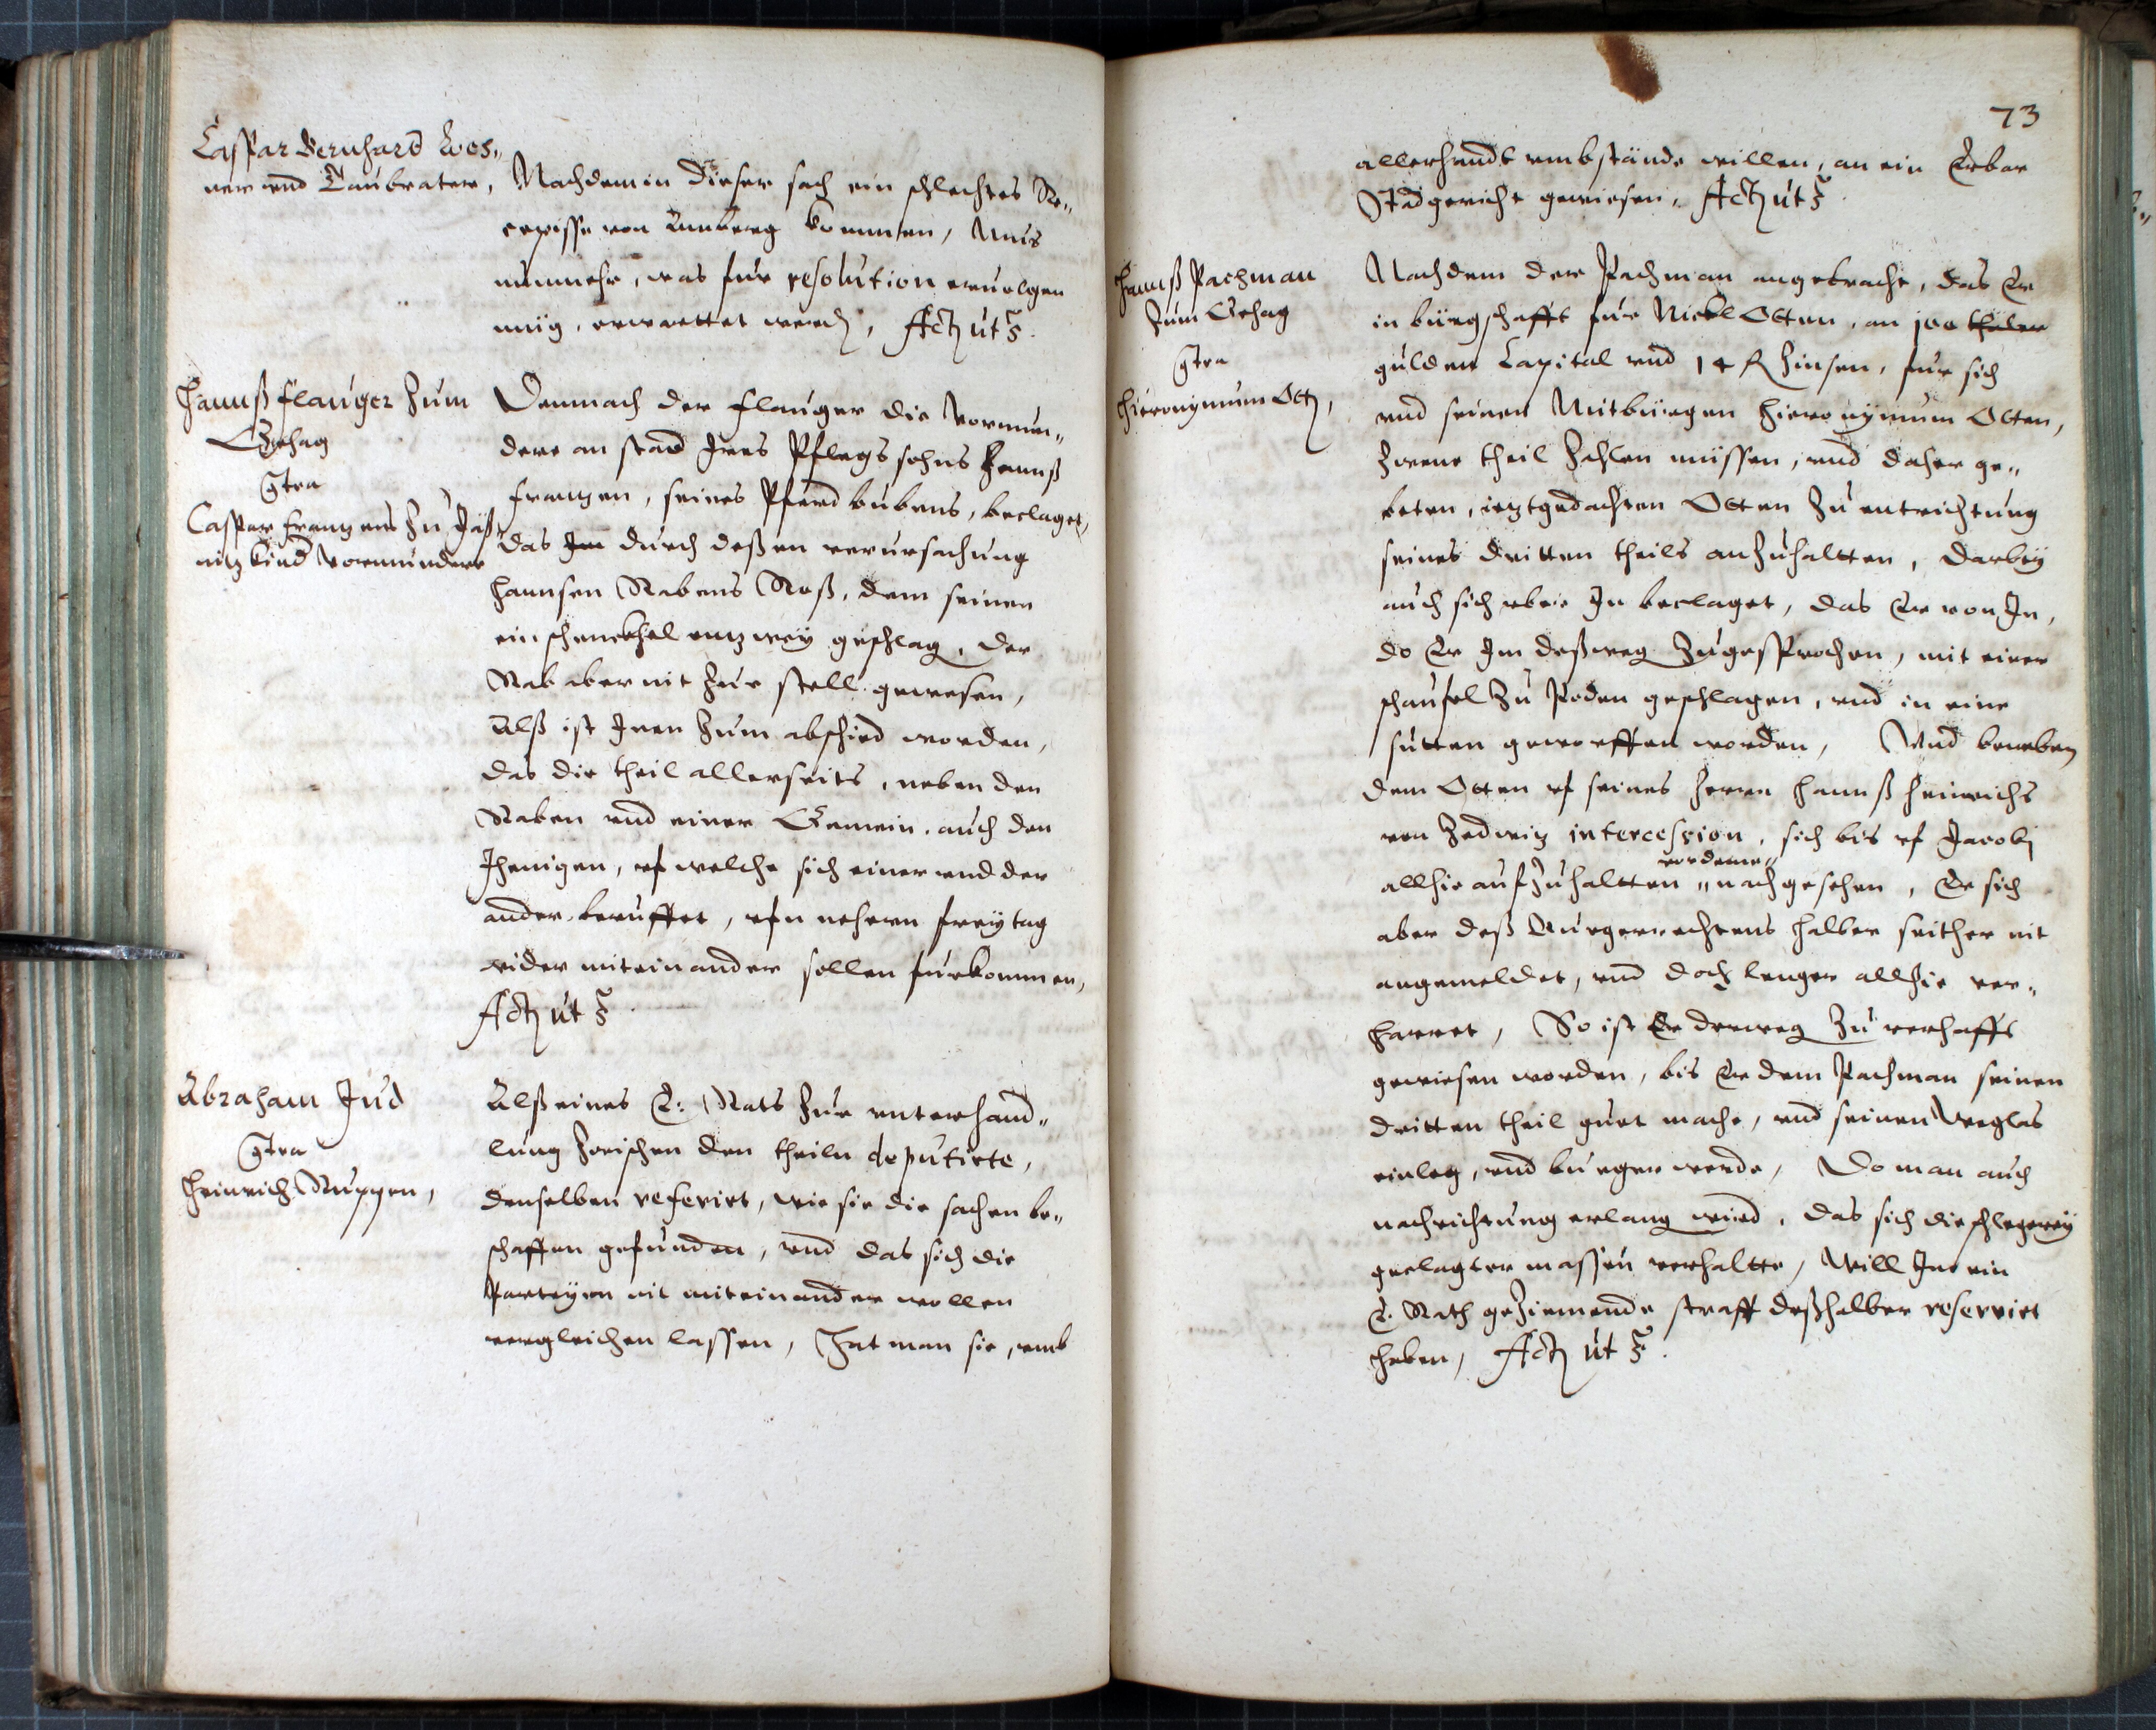 Caspar Bernhard Wos„
ner vnd Taubrater,
Nachdem in dieser sach ein schlechtes Re„
cepisse von Amberg kommen, Mus
nunmehr, was fur resolution ervolgen
müg, erwarttet werdn, Actũ ut s.
Hannß Flauger Zum
Gehag
Contra
Caspar Frantzens Zu Jäß„
nitz kind Vormundere
Demnach der Flauger die Vormun„
dere an stad Ires Pflegs sohns Hannß
Frantzen, seines Pferd bubens, beclaget,
das Im durch deßen verursachung
Hannsen Rabens Roß, dem seinen
ein schenckhel entzwey geschlagn, der
Rab aber nit Zur stell gewesen,
Alß ist Inen Zum abschied worden,
das die theil allerseits, neben den
Raben vnd einer Gemein, auch den
Jhenigen, vf welche sich einer vnd der
ander beruffet, vfn nehern freytag
wider miteinander sollen furkommen,
Actũ ut s.
Abraham Jud
Contra
Heinrich Ruppen,
Alß eines E: Rats Zur vnterhand„
lung Zwischen den theiln deputirte,
denselben referirt, wie sie die sachen be„
schaffen gefunden, vnd das sich die
Parteyen nit miteinander wollen
vergleichen lassen, Hat man sie, vmb
73
allerhandt vmbstände willen, an ein Erbar
Stadgericht gewiesen. Actũ ut s.
Hannß Pachman
Zum Gehag
Contra
Hieronymum Ottn,
Nachdem der Pachman angebracht, das Er
in bürgschafft fur Nickl Otten, an 100 thaler
gulden Capital vnd 14 fl Zinsen, fur sich
vnd seinen Mitbürgen Hieronymum Otten,
Zwene theil Zahlen müssen, vnd daher ge„
beten, jetztgedachten Otten Zu entrichtung
seines dritten theils anZuhaltten, Darbey
auch sich vber In beclaget, das Er von Im,
do Er Im deßwegn Zugesprochen, mit einer
schaufel Zu Poden geschlagen, vnd in eine
sutten geworffen worden, Vnd beneben
dem Otten vf seines Herrn Hannß Heinrichs
von Zedwitz intercession, sich bis vf Jacobj
vordeme„
allhie aufZuhaltten „nachgesehen, Er sich
aber deß Burgerrechtens halber seither nit
angemeldet, vnd doch lenger allhie ver„
harret, So ist Er derwegn Zu verhafft
gewiesen worden, bis Er dem Pachman seinen
dritten theil guet mache, vnd seinen Weglas
einleg, vnd burger werde, Do man auch
nachrichtung erlangn wird, das sich die schlegerey
geclagter massen verhaltte, Will Ime ein
E. Rath geZiemende straff deßhalber reservirt
haben, Actũ ut s.